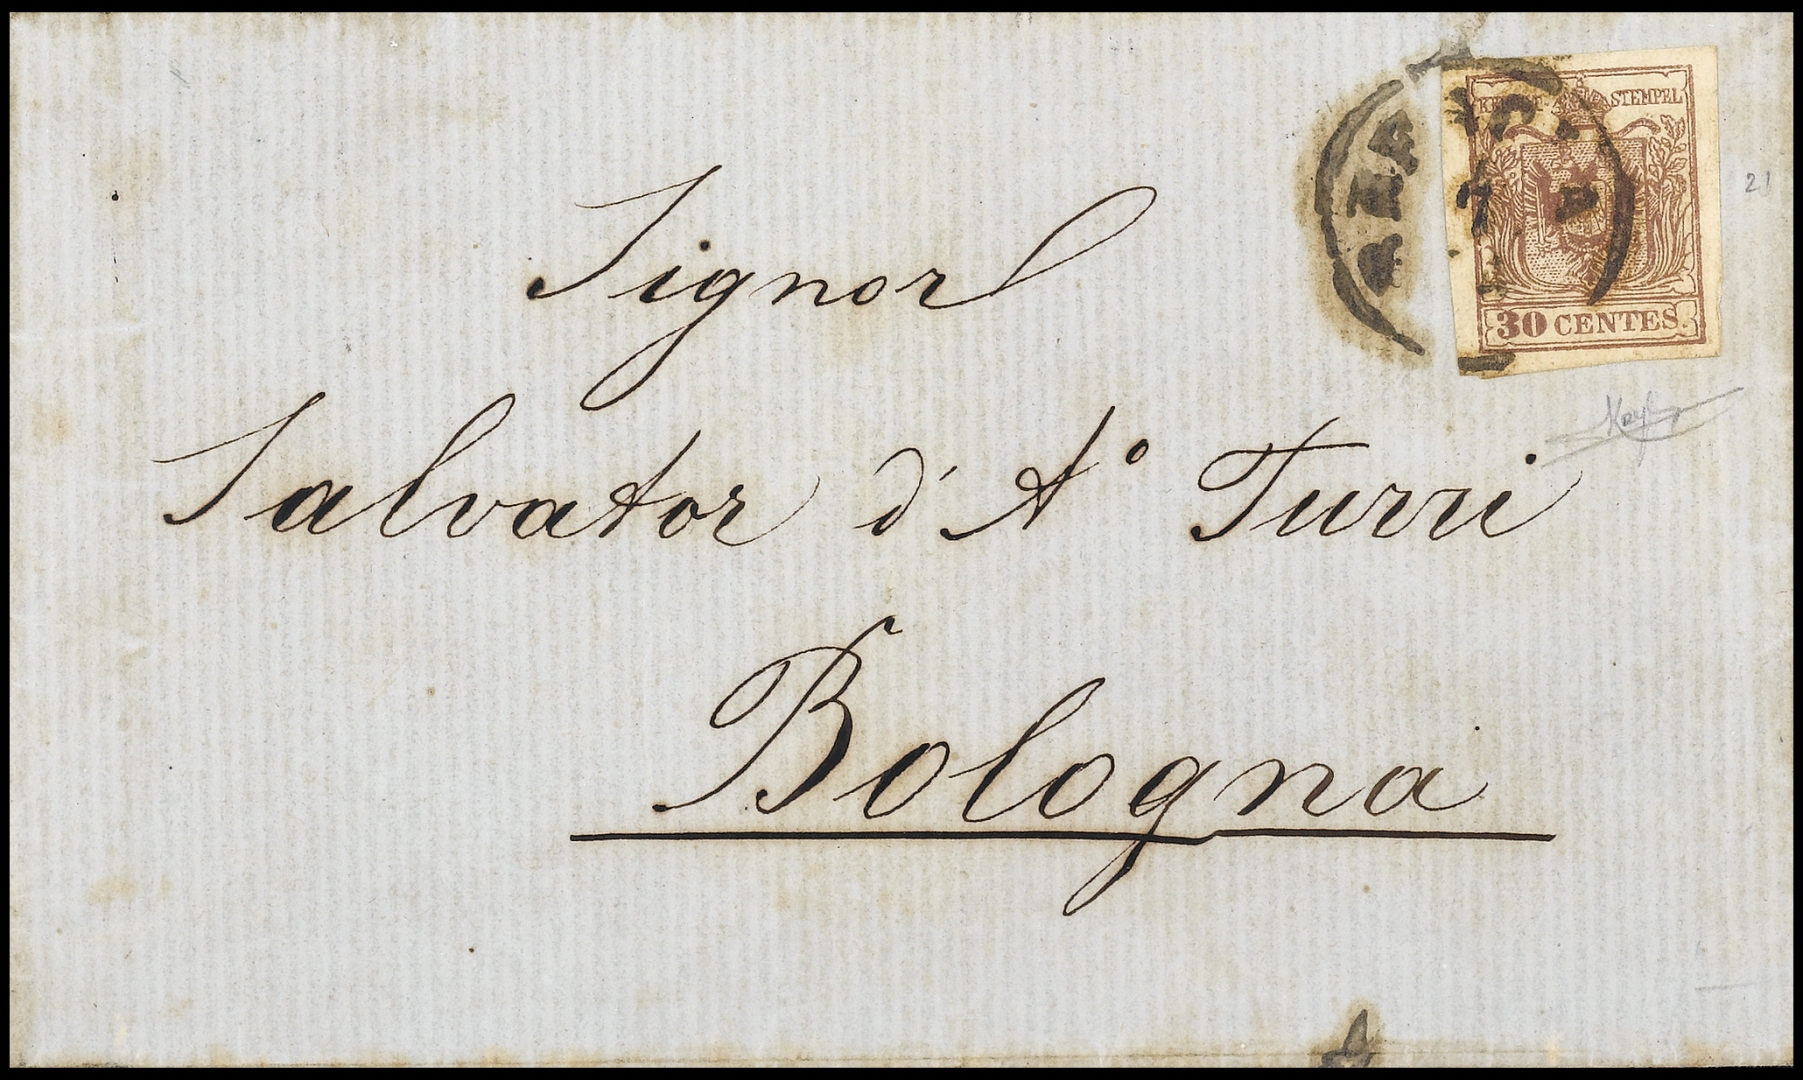 STEMPEL
30 CENTES.
21
Signor
Salvator d'Aº Turri
Bologna